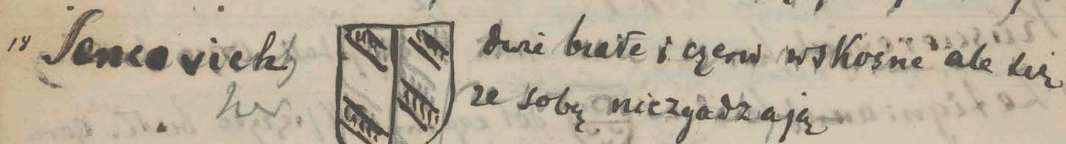 18 Sencovick) dwie białe i czerw wskośne ale się
ze sobą niezgadzają